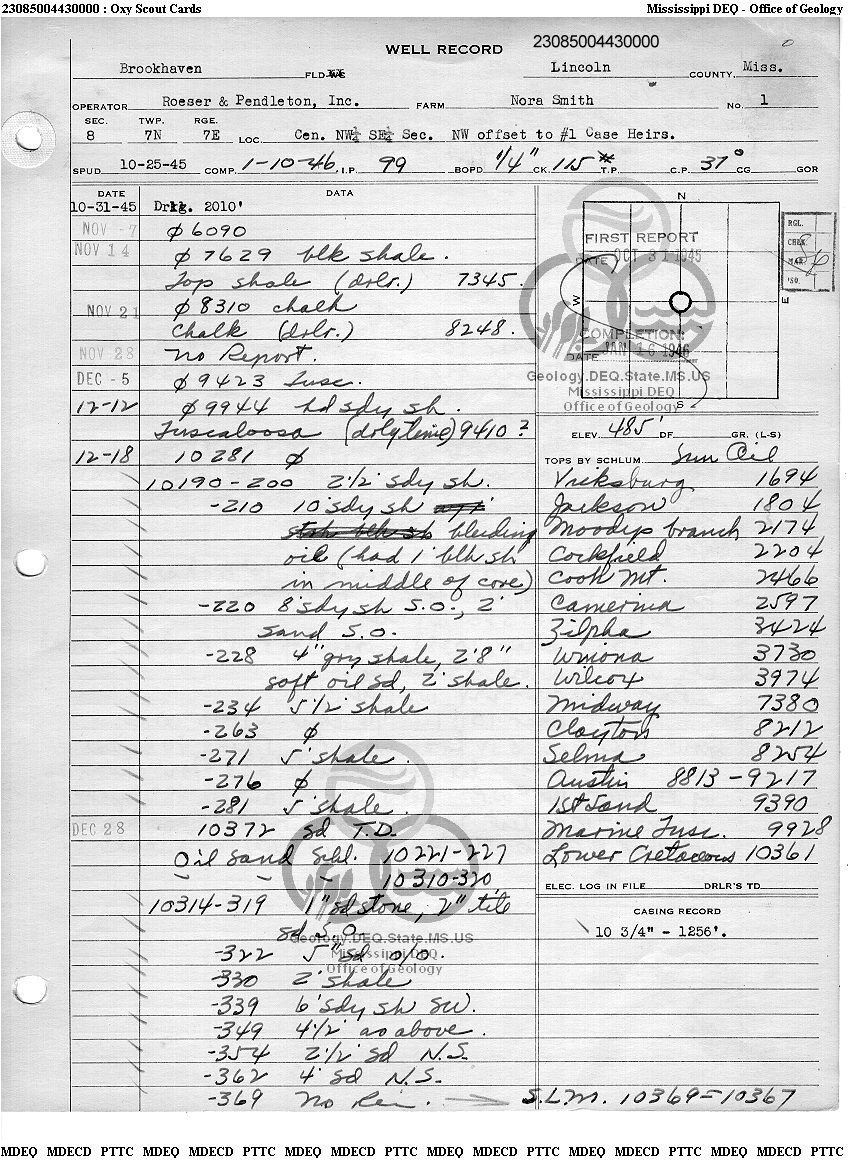 23085004430000 : Oxy Scout Cards
Mississippi DEQ - Office of Geology
WELL RECORD
23085004430000
Brookhaven FLD Lincoln COUNTY, Miss.
OPERATOR Roeser & Pendleton, Inc. FARM Nora Smith No. 1
SEC. TWP. RGE.
8 7N 7E LOC. Cen. NW¼ SE¼ Sec. NW offset to #1 Case Heirs.
SPUD 10-25-45 COMP. 1-10-46 I.P. 99 BOPD 1/4" CK. 115# T.P. C.P. 37° CG GOR
DATE DATA
10-31-45 Drlg. 2010'
NOV - 7 ϕ 6090
NOV 14 ϕ 7629 blk shale.
Top shale (drlr.) 7345.
NOV 21 ϕ 8310 chalk
Chalk (drlr.) 8248.
NOV 28 No Report.
DEC - 5 ϕ 9423 Tusc.
12-12 ϕ 9944 hd sdy sh.
Tuscaloosa (drlg time) 9410?
12-18 10281 ϕ
10190-200 2'½' sdy sh.
-210 10' sdy sh
bleeding
oil (had 1' blk sh
in middle of core)
-220 8' sdy sh S.O., 2'
sand S.O.
-228 4" gry shale, 2'8"
soft oil sd, 2' shale.
-234 5 1/2' shale
-263 ϕ
-271 5' shale.
-276 ϕ
-281 5' shale.
DEC 28 10372 sd T.D.
Oil Sand Schl. 10221-227
" " " 10310-320
10314-319 1" sd stone, 2" tite
sd S.O.
-322 5" sd O/O.
-330 2' shale
-339 6' sdy sh SW.
-349 4½' as above.
-354 2½' sd N.S.
-362 4' sd N.S.
-369 No Rec. → S.L.M. 10369=10367
N
W
E
S
FIRST REPORT
DATE OCT 31 1945
COMPLETION:
DATE JAN 16 1946
RGL.
CHEK.
MAP.
'SO.
Geology.DEQ.State.MS.US
Mississippi DEQ
Office of Geology
ELEV. 485' DF. GR. (L-S)
TOPS BY SCHLUM. Sun Oil
Vicksburg 1694
Jackson 1804
Moodys branch 2174
Cockfield 2204
Cook Mt. 2466
Camerina 2597
Zilpha 3424
Winona 3730
Wilcox 3974
Midway 7380
Clayton 8212
Selma 8254
Austin 8813-9217
1st Sand 9390
Marine Tusc. 9928
Lower Cretaceous 10361
ELEC. LOG IN FILE DRLR'S TD
CASING RECORD
10 3/4" - 1256'.
Geology.DEQ.State.MS.US
Mississippi DEQ
Office of Geology
MDEQ MDECD PTTC MDEQ MDECD PTTC MDEQ MDECD PTTC MDEQ MDECD PTTC MDEQ MDECD PTTC MDEQ MDECD PTTC